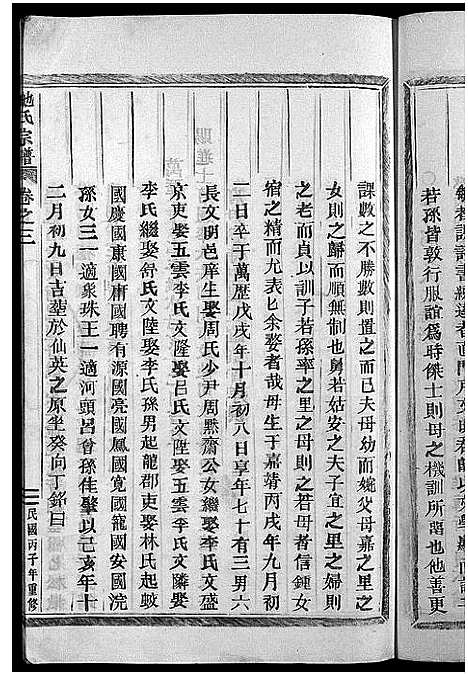 若孫皆敦行服誼為時傑士則母之機訓所詒也他善更
課數之不勝數則置之而已夫母幼而婉父母嘉之里之
女則之歸而順無制也舅若姑安之夫子宜之里之婦則
之老而貞以訓子若孫率之里之母則之若母者信鍾女
宿之精而尤表匕余婺者哉母生于嘉靖丙戌年九月初
二日卒于萬歷戊戌年十月初八日享年七十有三男六
長文明邑庠生娶周氏少尹周㷱齋公女繼娶李氏文盛
京吏娶五雲李氏文隆娶呂氏文陞娶五雲李氏文隣娶
李氏繼娶舒氏文陸娶李氏孫男起龍郡吏娶林氏起蛟
國慶國康國庸國聘有源國亮國鳳國寬國龍國安國浣
孫女三一適象珠王一適河頭呂曾孫佳肇以己亥年十
二月初九日吉塟於仙英之原坐癸向丁銘曰
氏宗譜 卷之三
民國丙子年重修